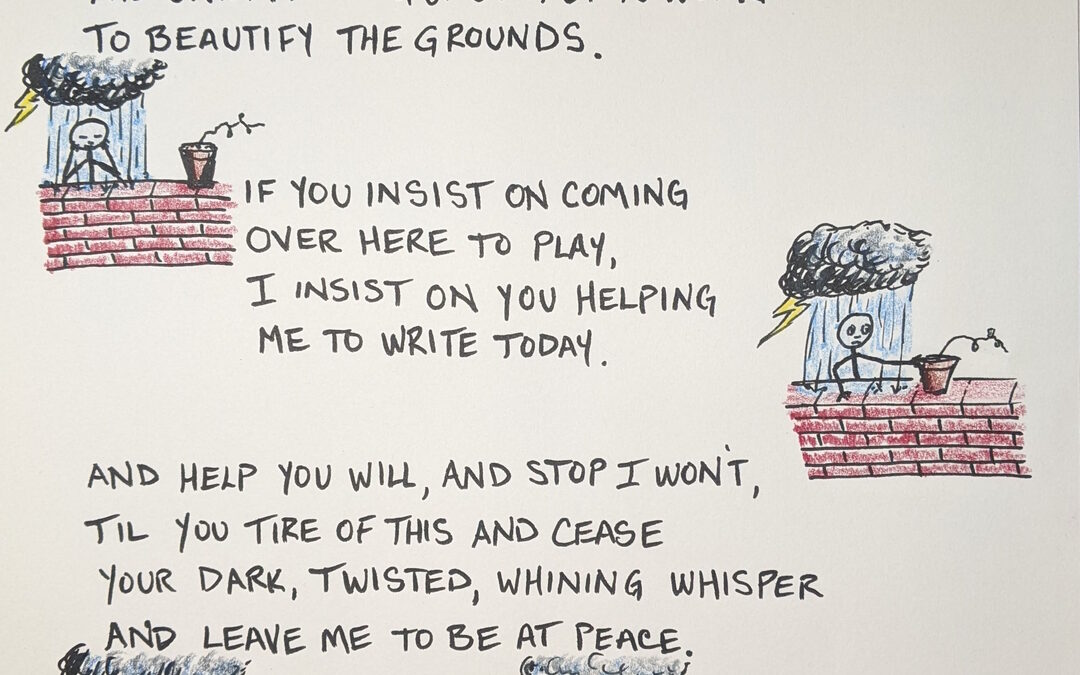 TO BEAUTIFY THE GROUNDS.
IF YOU INSIST ON COMING
OVER HERE TO PLAY,
I INSIST ON YOU HELPING
ME TO WRITE TODAY.
AND HELP YOU WILL, AND STOP I WON'T,
TIL YOU TIRE OF THIS AND CEASE
YOUR DARK, TWISTED, WHINING WHISPER
AND LEAVE ME TO BE AT PEACE.